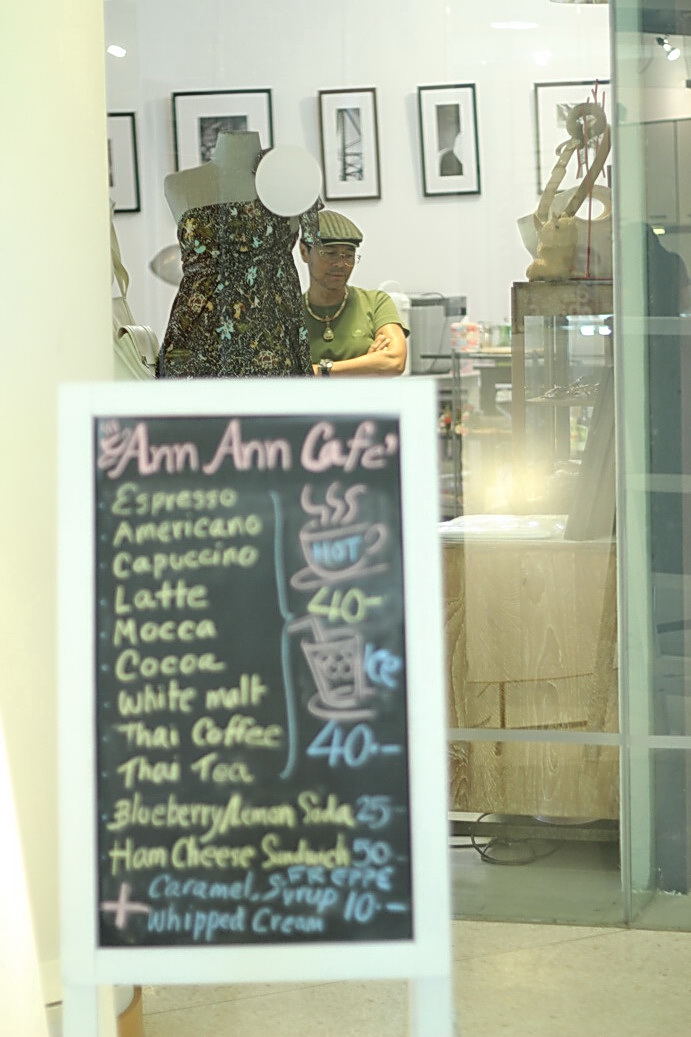 Ann Ann Cafe'
Espresso
Americano
Capuccino
HOT
Latte
40-
Mocca
Cocoa
Ice
White malt
Thai Coffee
40.-
Thai Tea
Blueberry/Lemon Soda 25-
Ham Cheese Sandwich 50-
+ Caramel, Syrup 10.-
Whipped Cream